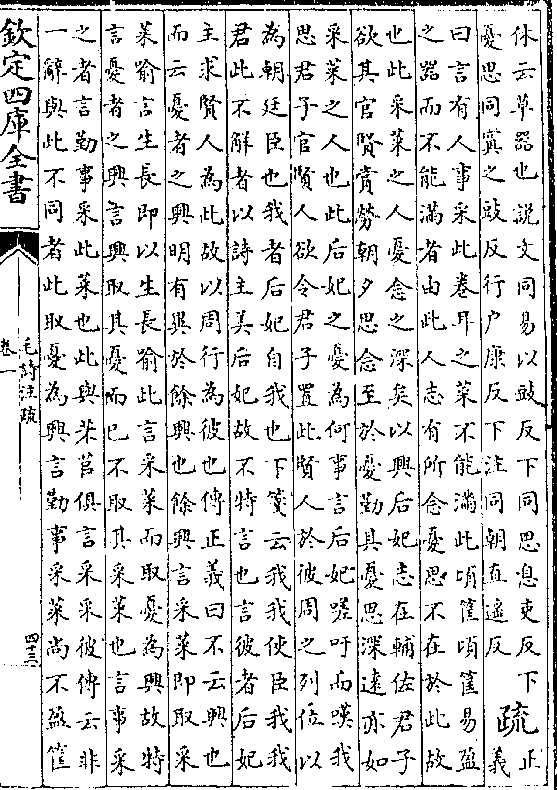 休云草器也說文同易以豉反下同思息吏反下
憂思同寘之豉反行戶康反下注同朝直遙反 疏正義
曰言有人事采此卷耳之菜不能滿此頃筐頃筐易盈
之器而不能滿者由此人志有所念憂思不在於此故
也此采菜之人憂念之深矣以興后妃志在輔佐君子
欲其官賢賞勞朝夕思念至於憂勤其憂思深遠亦如
采菜之人也此后妃之憂為何事言后妃嗟吁而嘆我
思君子官賢人欲令君子置此賢人於彼周之列位以
為朝廷臣也我者后妃自我也下箋云我我使臣我我
君此不解者以詩主美后妃故不特言也言彼者后妃
主求賢人為此故以周行為彼也傳正義曰不云興也
而云憂者之興明有異於餘興也餘興言采菜即取采
菜喻言生長即以生長喻此言采菜而取憂為興故特
言憂者之興言興取其憂而已不取其采菜也言事采
之者言勤事采此菜也此與芣苢俱言采采彼傳云非
一辭與此不同者此取憂為興言勤事采菜尚不盈筐
欽定四庫全書
毛詩注疏
卷一
四十三